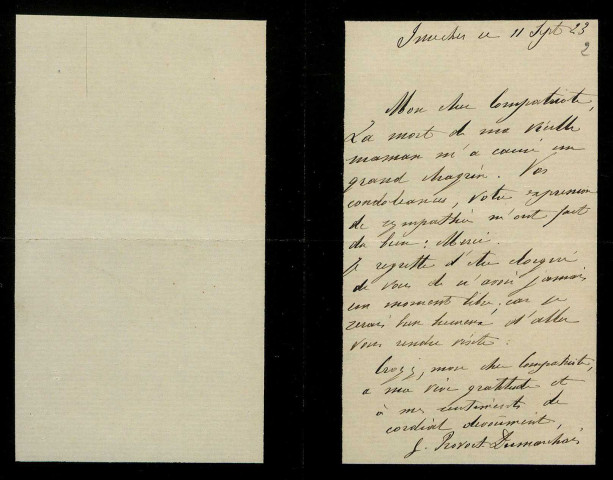 ce 11 Sept 23
2
Mon cher Compatriote,
La mort de ma vieille
maman m'a causé un
grand chagrin. Vos
condoléances, votre expression
de sympathie m'ont fait
du bien : Merci.
Je regrette d'être éloigné
de vous de n'avoir jamais
un moment libre. car je
serais bien heureux d'aller
vous rendre visite.
Croyez, mon cher Compatriote,
a ma vive gratitude et
à mes sentiments de
cordial dévoûment,
J. Provost Dumarchais